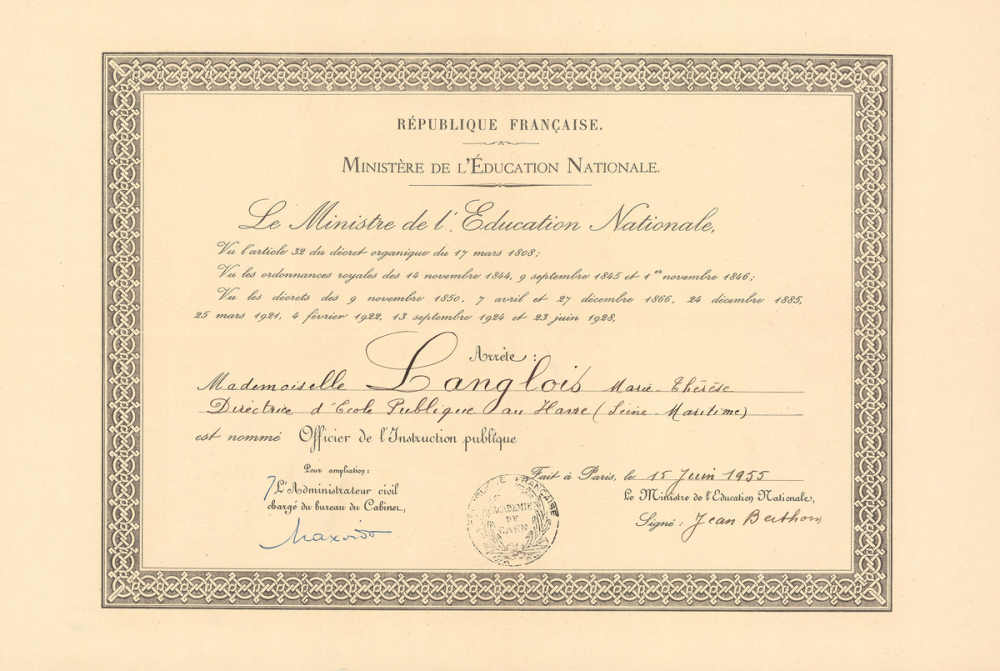 RÉPUBLIQUE FRANÇAISE.
MINISTÈRE DE L'ÉDUCATION NATIONALE.
Le Ministre de l'Education Nationale,
Vu l'article 32 du décret organique du 17 mars 1808;
Vu les ordonnances royales des 14 novembre 1844, 9 septembre 1845 et 1er novembre 1846;
Vu les décrets des 9 novembre 1850, 7 avril et 27 décembre 1866, 24 décembre 1885,
25 mars 1921, 4 février 1922, 13 septembre 1924 et 23 juin 1928,
Arrête :
Mademoiselle Langlois Marie-Thérèse
Directrice d'Ecole Publique au Havre (Seine-Maritime)
est nommé Officier de l'Instruction publique
Pour ampliation :
L'Administrateur civil
chargé du bureau du Cabinet,
Fait à Paris, le 15 Juin 1955
Le Ministre de l'Education Nationale,
Signé : Jean Berthoin
RÉPUBLIQUE FRANÇAISE
ACADÉMIE
DE
CAEN